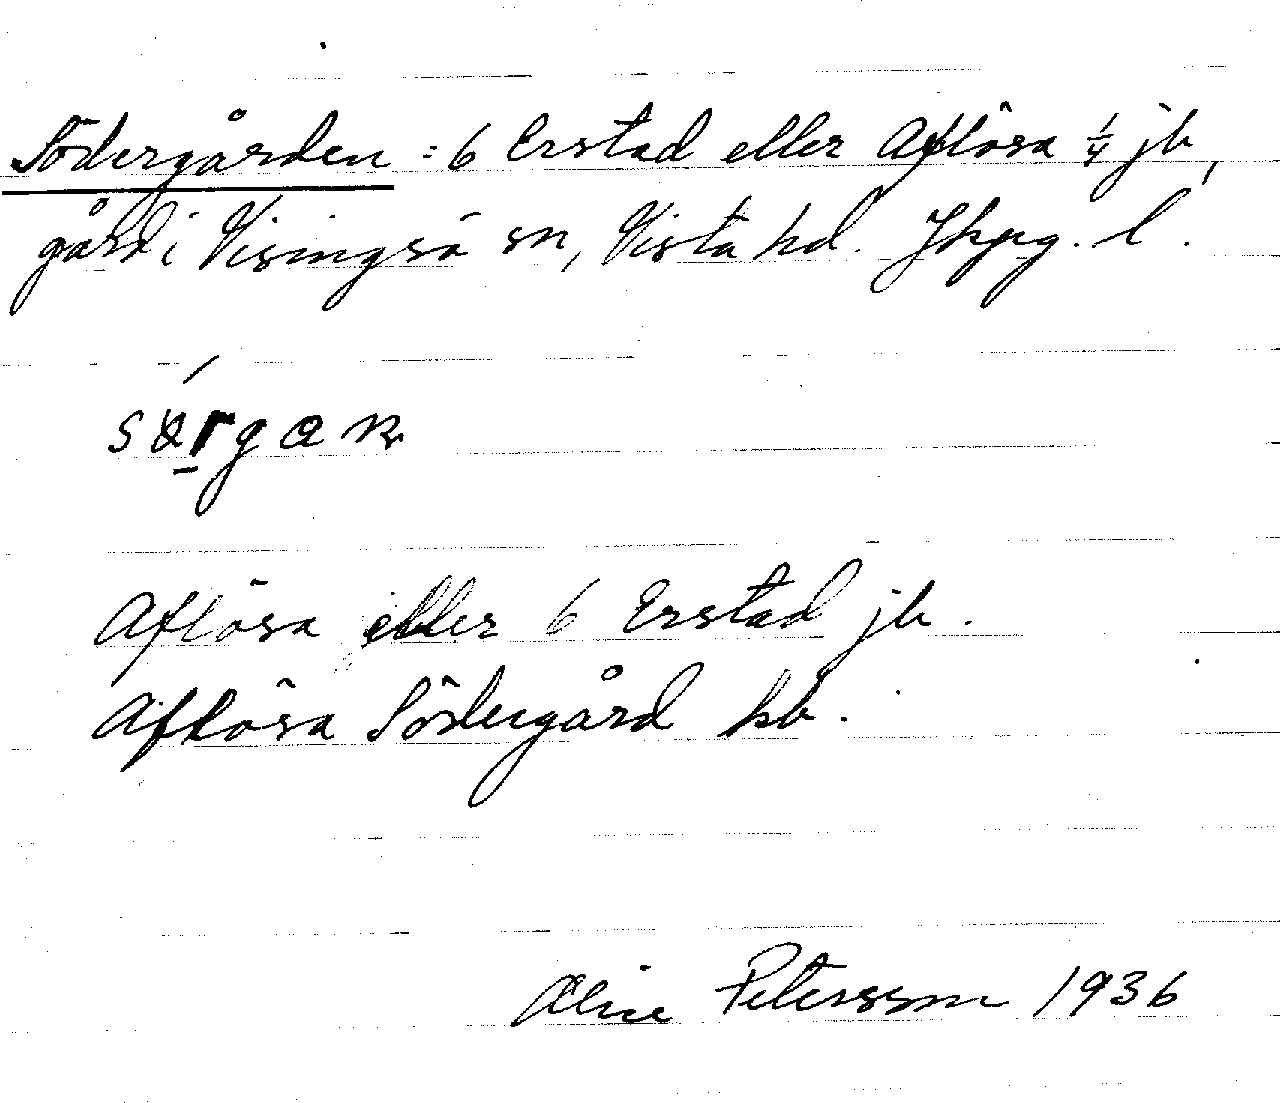 Södergården : 6 Erstad eller Aflösa ¼ jb,
gård i Visingsö sn, Vista hd. Jkpg. l.
Aflösa eller 6 Erstad jb.
Aflösa Södergård kb.
Alice Petersson 1936